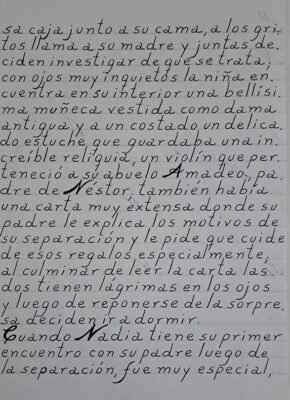 sa caja junto a su cama, a los gri-
tos llama a su madre y juntas de-
ciden investigar de que se trata;
con ojos muy inquietos la niña en-
cuentra en su interior una bellísi-
ma muñeca vestida como dama
antigua y a un costado un delica-
do estuche que guardaba una in-
creíble reliquia, un violín que per-
teneció a su abuelo Amadeo, pa-
dre de Néstor. también había
una carta muy extensa donde su
padre le explica los motivos de
su separación y le pide que cuide
de esos regalos especialmente,
al culminar de leer la carta las
dos tienen lágrimas en los ojos
y luego de reponerse de la sorpre-
sa deciden ir a dormir.
Cuando Nadia tiene su primer
encuentro con su padre luego de
la separación, fue muy especial,